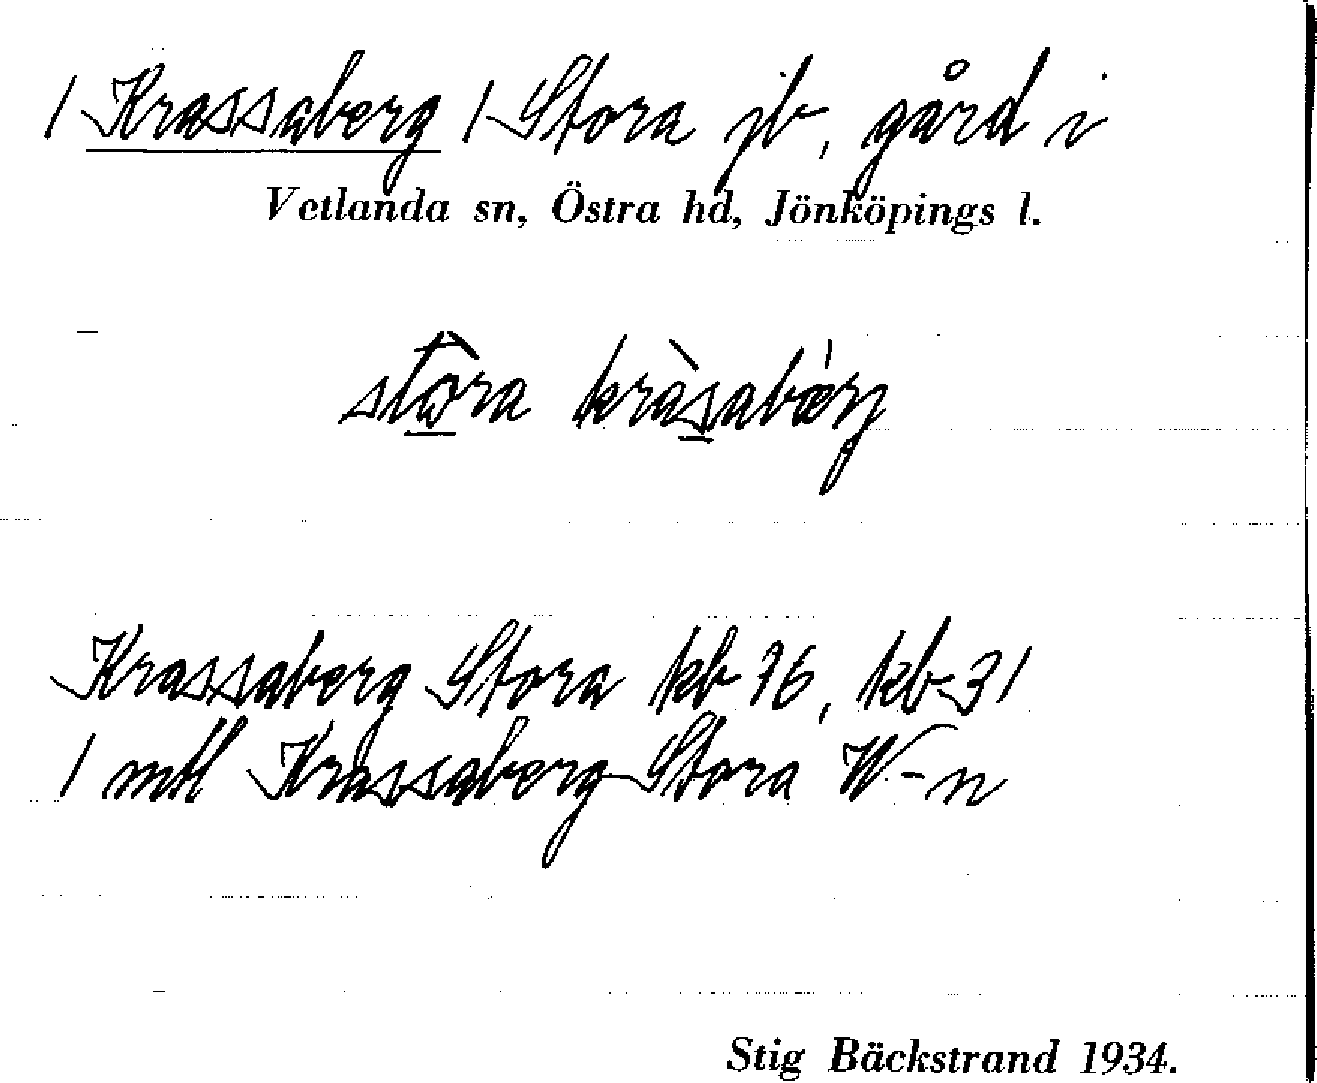 / Krassaberg / Stora jb, gård i
Vetlanda sn, Östra hd, Jönköpings l.
stôra kràsabærj
Krassaberg Stora kb 76, kb 31
1 mtl Krassaberg Stora W-n
Stig Bäckstrand 1934.